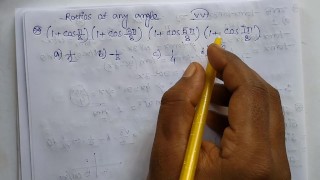 Ratios of any angle - VVI
Q8 (1 + cos π/8) (1 + cos 3π/8) (1 + cos 5π/8) (1 + cos 7π/8)
a) 1/2 b) -1/2 c) 1/4